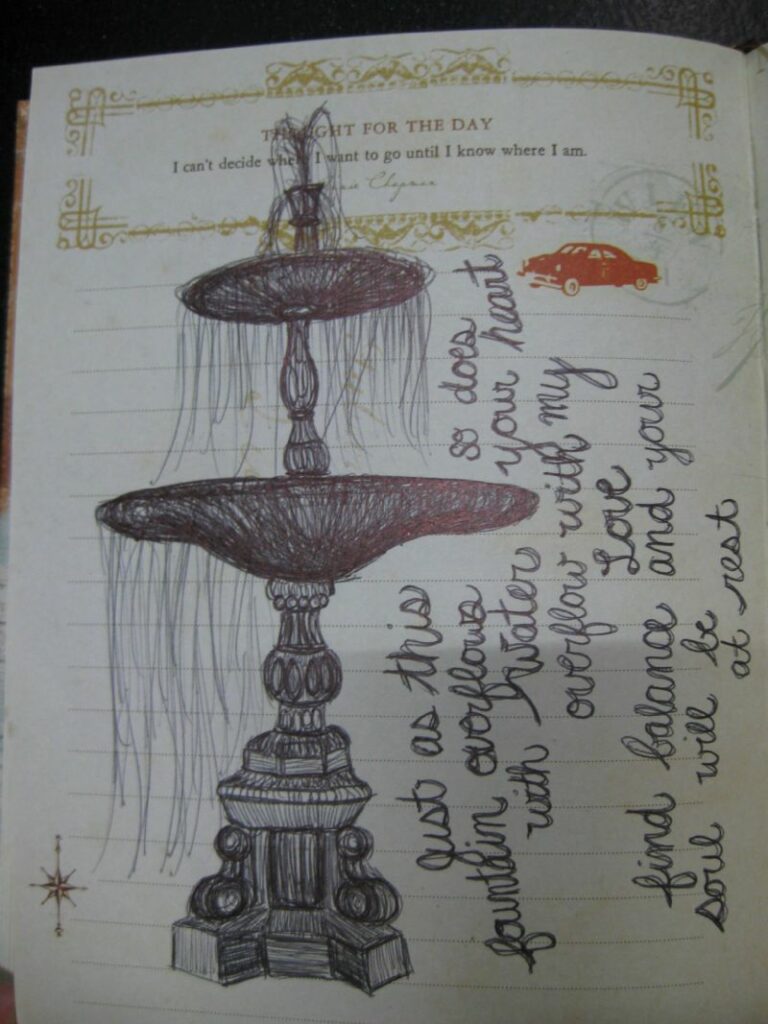 THOUGHT FOR THE DAY
I can't decide where I want to go until I know where I am.
Chapman
Just as this
fountain overflows
with Water
so does
your heart
overflow with my
Love
find balance and your
soul will be
at rest